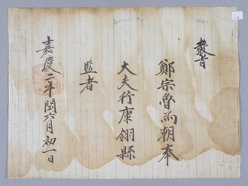 敎旨
鄭宗魯爲朝奉
大夫行康翎縣
監者
嘉慶二年閏六月初一日